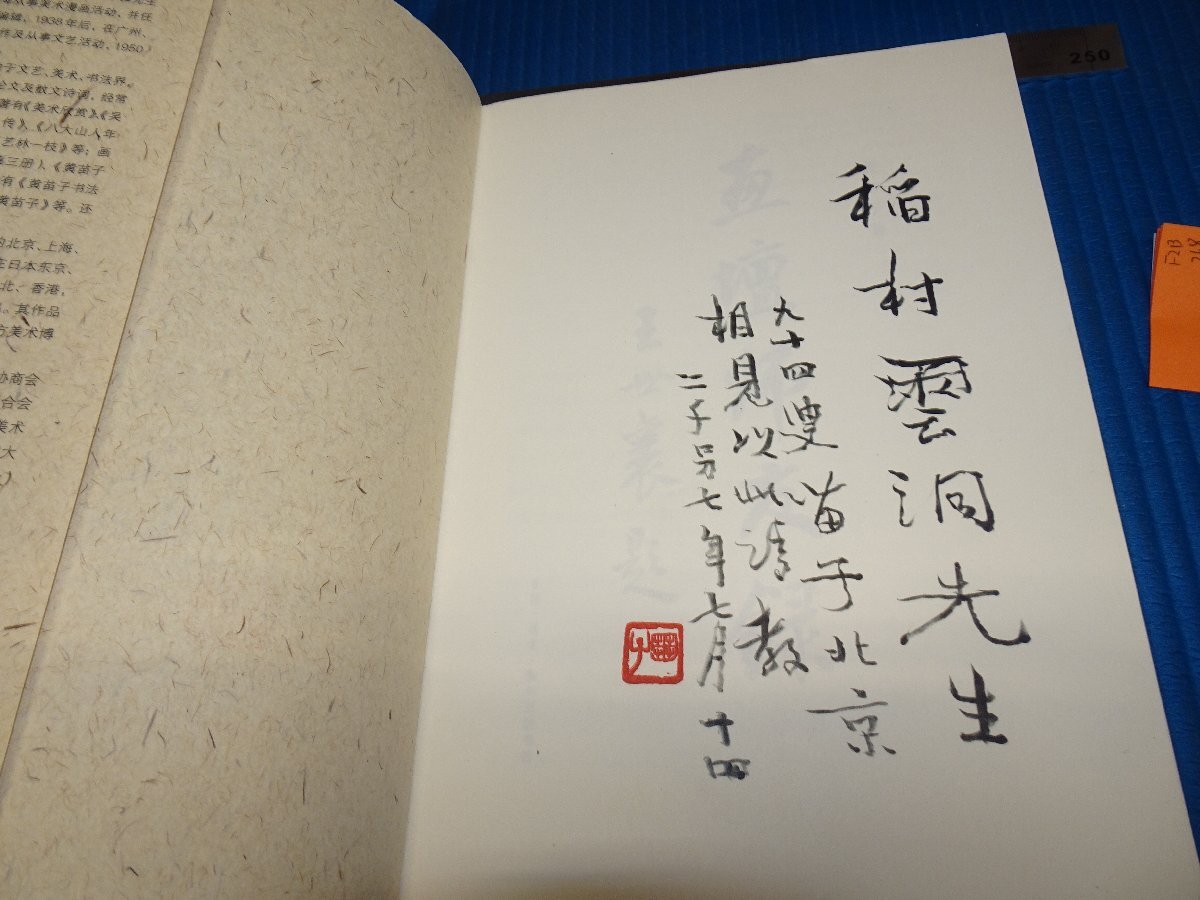 稲村雲洞先生
九十四叟苗子北京
相見以此请教
二千另七年七月十四
苗子
事美术漫画活动，并任
编辑，1938年后，在广州、
作及从事文艺活动，1950
于文艺、美术、书法界。
论文及散文诗词，经常
著有《美术欣赏》、《吴
传》、《八大山人年
艺林一枝》等；画
三册）、《黄苗子
有《黄苗子书法
黄苗子》等。还
的北京、上海、
在日本东京、
北、香港，
。其作品
方美术博
协商会
合会
美术
大
250
F2B
王世襄题